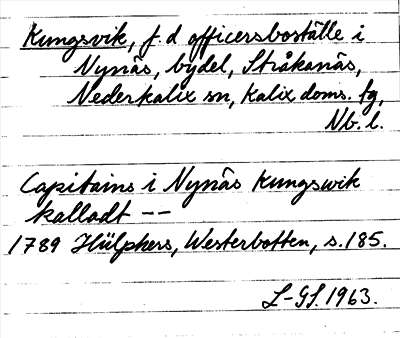 Kungsvik, f.d officersboställe i
Nynäs, bydel, Stråkanäs,
Nederkalix sn, Kalix doms. fg,
Nb. l.
Capitains i Nynäs Kungswik
kalladt --
1789 Hülphers, Westerbotten, s.185.
L-GL.1963.